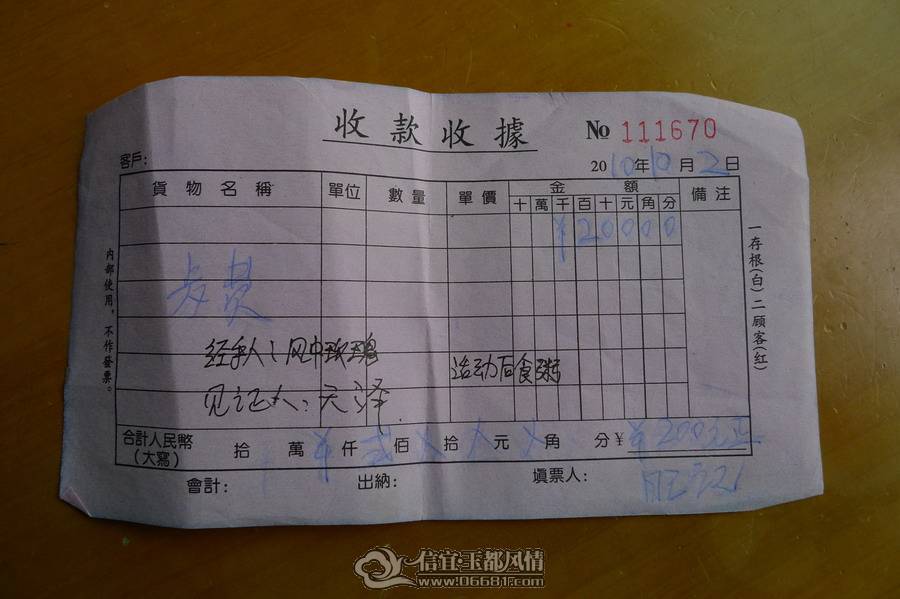 收款收據 No 111670
客戶： 2010年10月2日
貨物名稱 單位 數量 單價 金額 備注
十 萬 千 百 十 元 角 分
¥20000
费
经手人：风中玫瑰
运动后食粥
见证人：天泽
合計人民幣（大寫） 拾 萬 ¥ 仟 贰 佰 拾 元 角 分 ¥ ¥200元正
會計： 出納： 填票人：
內部使用，不作發票。
一存根(白)二顾客(红)
信宜·玉都风情
www.06681.com